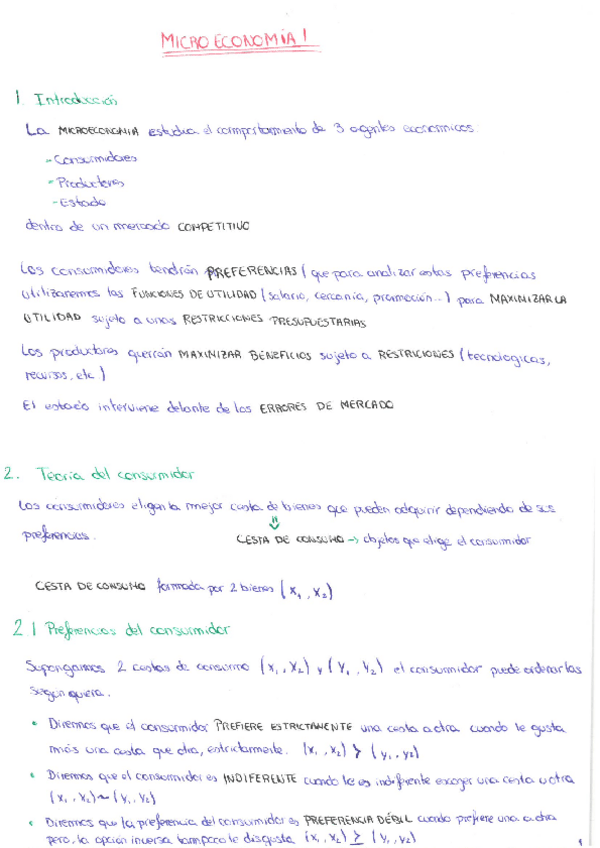 MICROECONOMÍA I
1. Introducción
La MICROECONOMIA estudia el comportamiento de 3 agentes economicos.
- Consumidores
- Productores
- Estado
dentro de un mercado COMPETITIVO
Los consumidores tendrán PREFERENCIAS (que para analizar estas preferencias
utilizaremos las FUNCIONES DE UTILIDAD (salario, cercania, promoción...) para MAXIMIZAR LA
UTILIDAD sujeto a unas RESTRICCIONES PRESUPUESTARIAS
Los productores querrán MAXIMIZAR BENEFICIOS sujeto a RESTRICCIONES (tecnologicas,
recursos, etc)
El estado interviene delante de los ERRORES DE MERCADO
2. Teoría del consumidor
Los consumidores eligen la mejor cesta de bienes que pueden adquirir dependiendo de sus
preferencias.
⇓
CESTA DE CONSUMO → objetos que elige el consumidor
CESTA DE CONSUMO formada por 2 bienes (x₁, x₂)
2.1 Preferencias del consumidor
Supongamos 2 cestas de consumo (x₁, x₂) y (y₁, y₂) el consumidor puede ordenarlas
según quiera.
• Diremos que el consumidor PREFIERE ESTRICTAMENTE una cesta a otra cuando le gusta
más una cesta que otra, estrictamente. (x₁, x₂) ≻ (y₁, y₂)
• Diremos que el consumidor es INDIFERENTE cuando le es indiferente escoger una cesta u otra
(x₁, x₂) ~ (y₁, y₂)
• Diremos que la preferencia del consumidor es PREFERENCIA DÉBIL cuando prefiere una a otra
pero, la opción inversa tampoco le disgusta (x₁, x₂) ≽ (y₁, y₂)
1